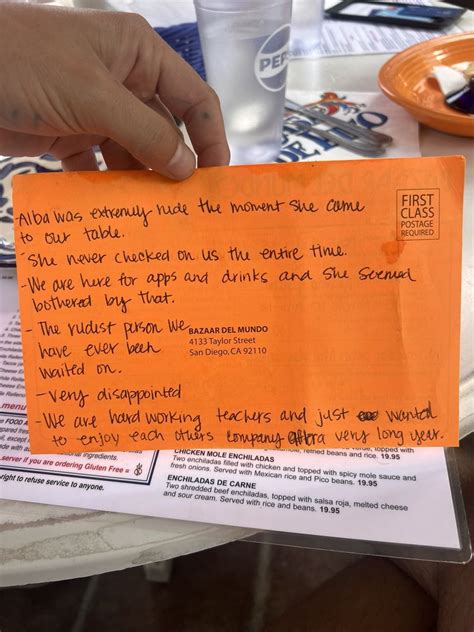 PEPSI
FIRST
CLASS
POSTAGE
REQUIRED
-Alba was extremely rude the moment she came
to our table.
-She never checked on us the entire time.
-We are here for apps and drinks and she seemed
bothered by that.
- The rudest person we
have ever been
waited on.
BAZAAR DEL MUNDO
4133 Taylor Street
San Diego, CA 92110
-very disappointed
-We are hard working teachers and just wanted
to enjoy each others company after a very long year.
.menu
ingredients.
.server if you are ordering Gluten Free
right to refuse service to anyone.
refried beans and rice. 19.95
CHICKEN MOLE ENCHILADAS
Two enchiladas filled with chicken and topped with spicy mole sauce and
fresh onions. Served with Mexican rice and Pico beans. 19.95
ENCHILADAS DE CARNE
Two shredded beef enchiladas, topped with salsa roja, melted cheese
and sour cream. Served with rice and beans. 19.95